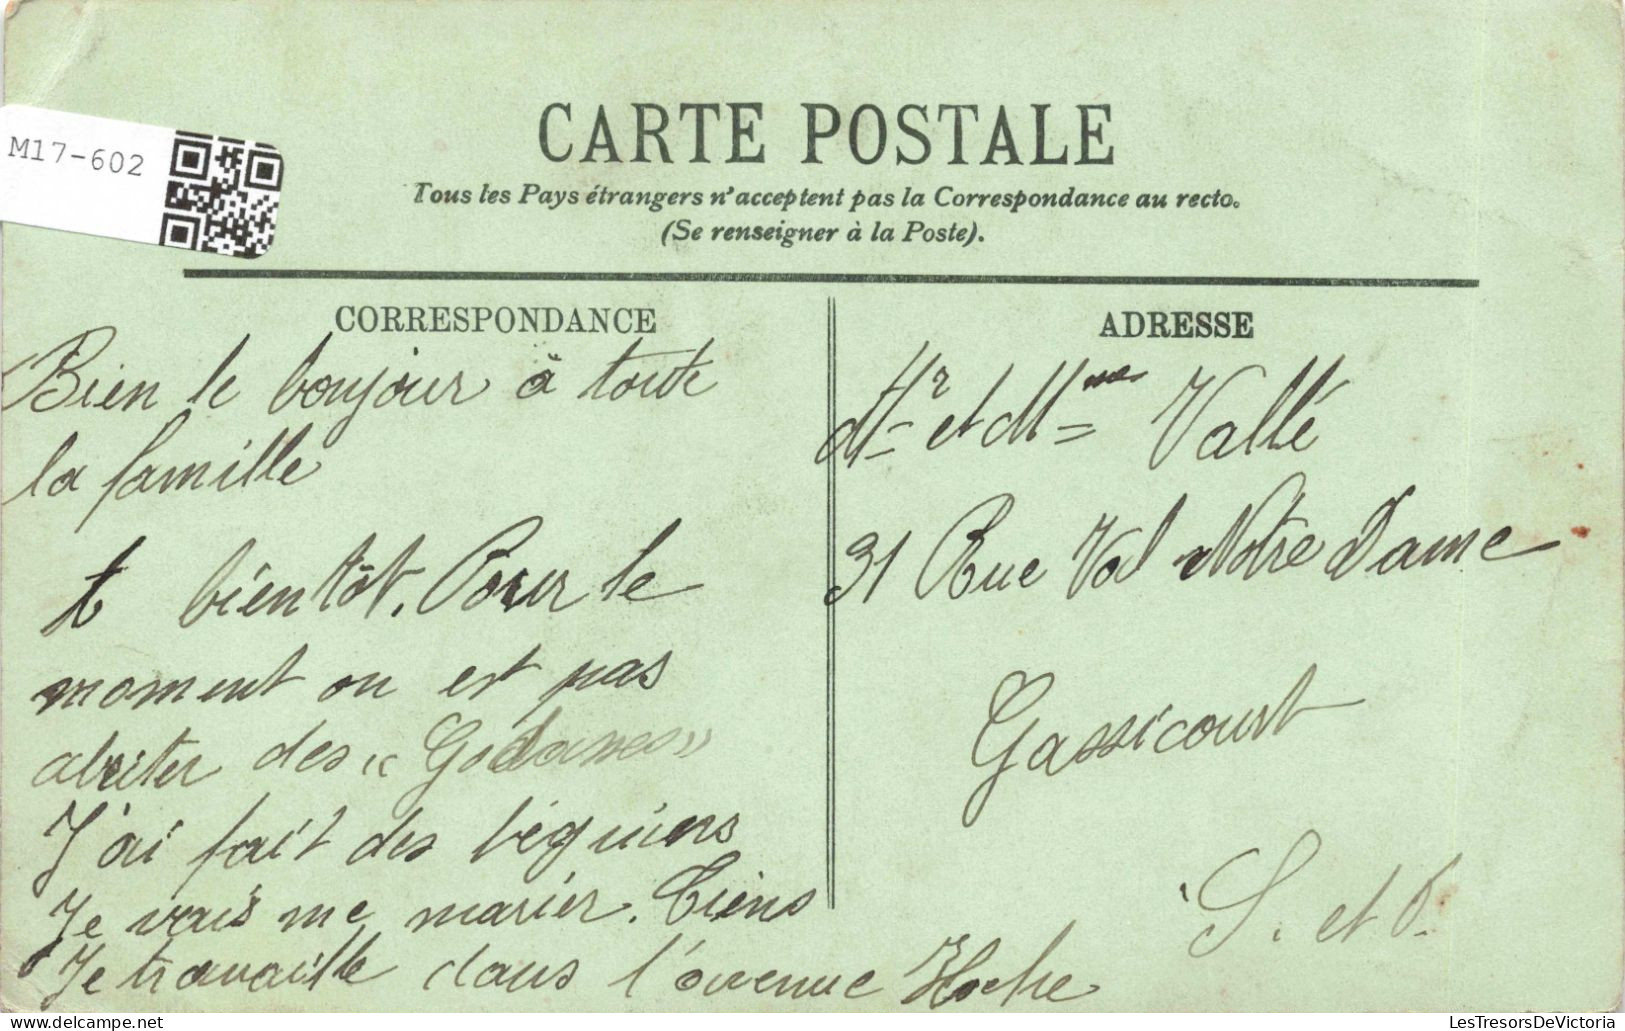 M17-602
CARTE POSTALE
Tous les Pays étrangers n'acceptent pas la Correspondance au recto.
(Se renseigner à la Poste).
CORRESPONDANCE
Bien le bonjour à toute
la famille
bientôt. Pour le
moment on est pas
abriter des «
J'ai fait des béguins
Je vais me marier. Tiens
Je travaille dans l'avenue Hoche
ADRESSE
Mr et Mme Vallé
31 Rue Val Notre Dame
Gassicourt
S. et O.
LesTresorsDeVictoria
www.delcampe.net